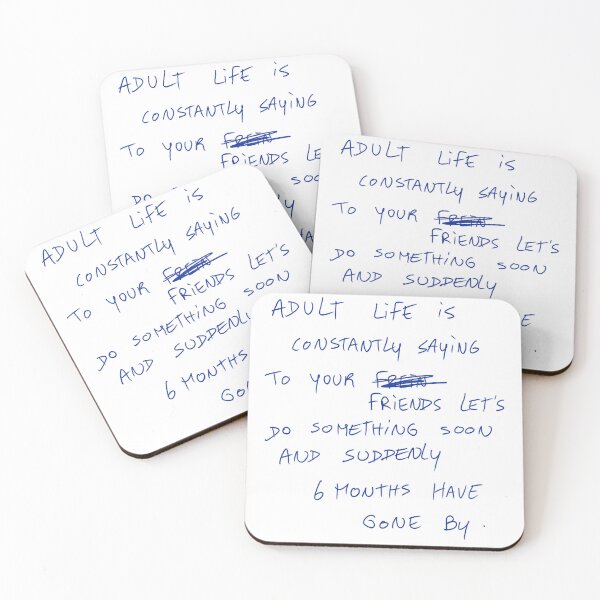 ADULT LiFE is
CONSTANTLY SAYiNG
TO YOUR
FRiENDS LE
DO SOO
ADULT LiFE is
CONSTANTLY SAYiNG
TO YOUR
FRiENDS LET'S
DO SOMETHiNG SOON
AND SUDDENLY
E
ADULT LiFE is
CONSTANTLY SAYiNG
TO YOUR
FRiENDS LET'S
DO SOMETHiNG SOON
AND SUDDENLY
6 MONTHS
GO
ADULT LiFE is
CONSTANTLY SAYiNG
TO YOUR
FRiENDS LET'S
DO SOMETHiNG SOON
AND SUDDENLY
6 MONTHS HAVE
GONE By.